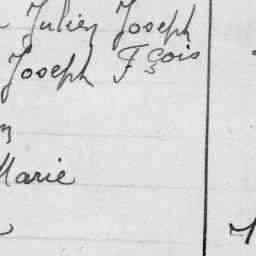 Julien Joseph
Joseph Fçois
Marie